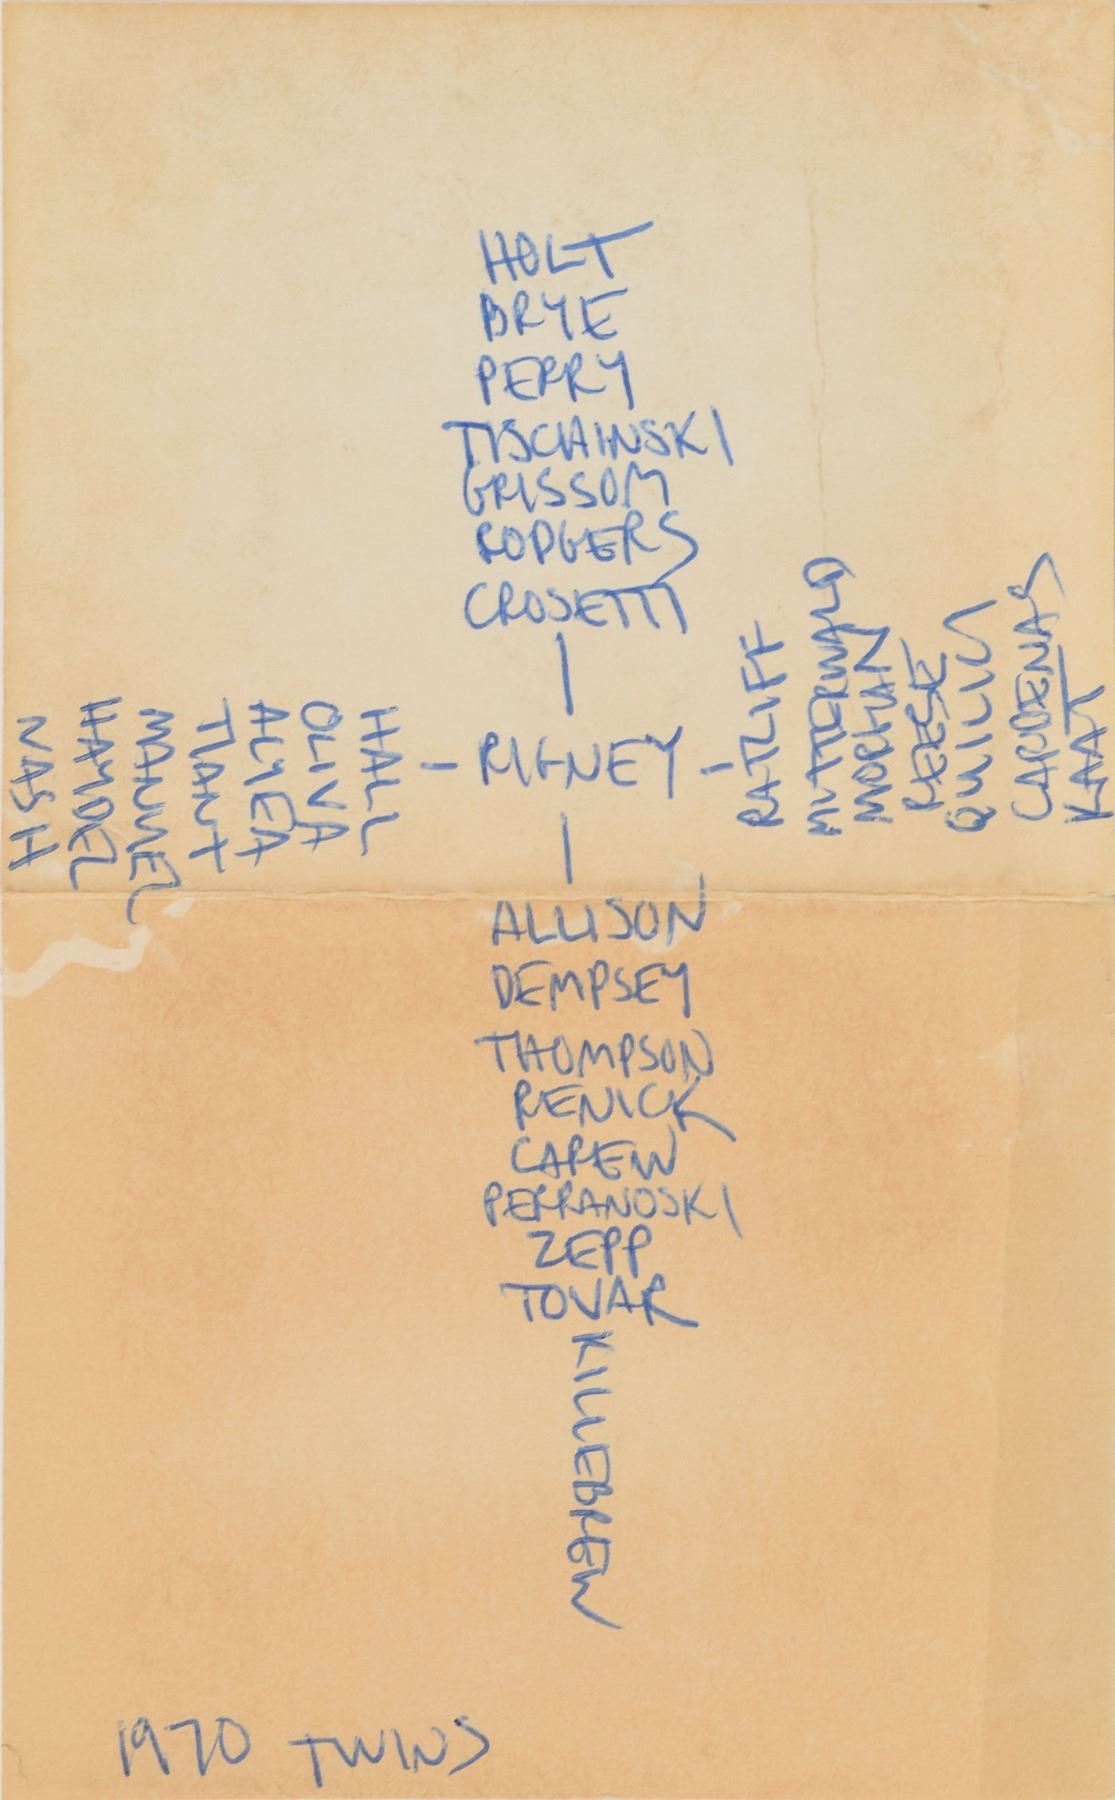 HOLT
BRYE
PERRY
TISCHINSKI
GRISSOM
RODGERS
CROSETTI
|
HALL
OLIVA
ALYEA
TIANT
MANUEL
HAYDEL
NASH
- RIGNEY -
RATLIFF
MITTERWALD
MORGAN
REESE
QUILICI
CARDENAS
KAAT
|
ALLISON
DEMPSEY
THOMPSON
RENICK
CAREW
PERRANOSKI
ZEPP
TOVAR
KILLEBREW
1970 TWINS